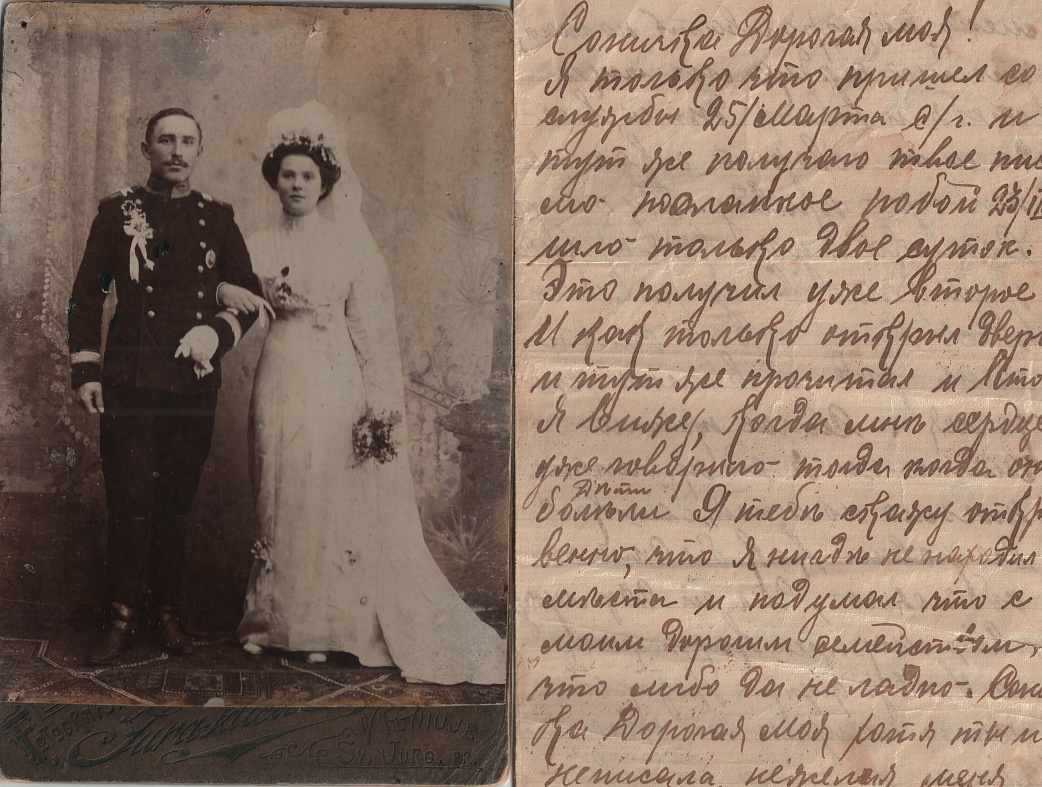 Соничка Дорогая моя!
Я только что пришел со
службы 25/Марта с/г. и
тут же получаю твое пис
мо посланное тобой 23/III
шло только двое суток.
Это получил уже второе
И как только открыл дверь
и тут же прочитал и что
я вижу, когда мнѣ сердце
уже говорило тогда когда он
Дѣти
болѣли Я тебѣ скажу откр
венно, что я нигдѣ не находил
мѣста и подумал что с
моим дорогим семейством,
что либо да не ладно. Сон
ка Дорогая моя хотя ты и
неписала, нежелая меня
V VILNIUJE
Sv. Jurg. pr.